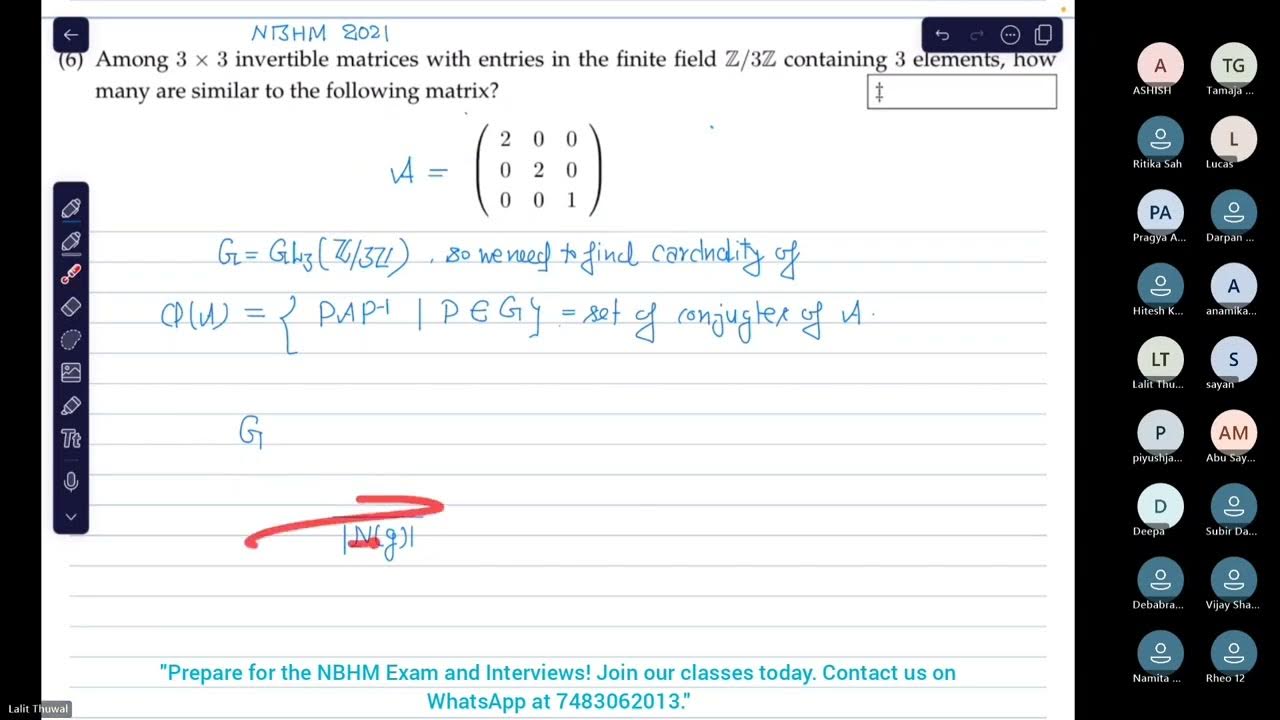 NBHM 2021
(6) Among 3 × 3 invertible matrices with entries in the finite field ℤ/3ℤ containing 3 elements, how
many are similar to the following matrix?
‡
A = ( 2 0 0
0 2 0
0 0 1 )
G = GL₃(ℤ/3ℤ), so we need to find cardndity of
Cl(A) = { PAP⁻¹ | P ∈ G} = set of conjugtes of A.
G
|N(g)|
"Prepare for the NBHM Exam and Interviews! Join our classes today. Contact us on
WhatsApp at 7483062013."
Lalit Thuwal
Tt
A
ASHISH
TG
Tamaja ...
Ritika Sah
L
Lucas
PA
Pragya A...
Darpan ...
Hitesh K...
A
anamika...
LT
Lalit Thu...
S
sayan
P
piyushja...
AM
Abu Say...
D
Deepa
Subir Da...
Debabra...
Vijay Sha...
Namita ...
Rheo 12